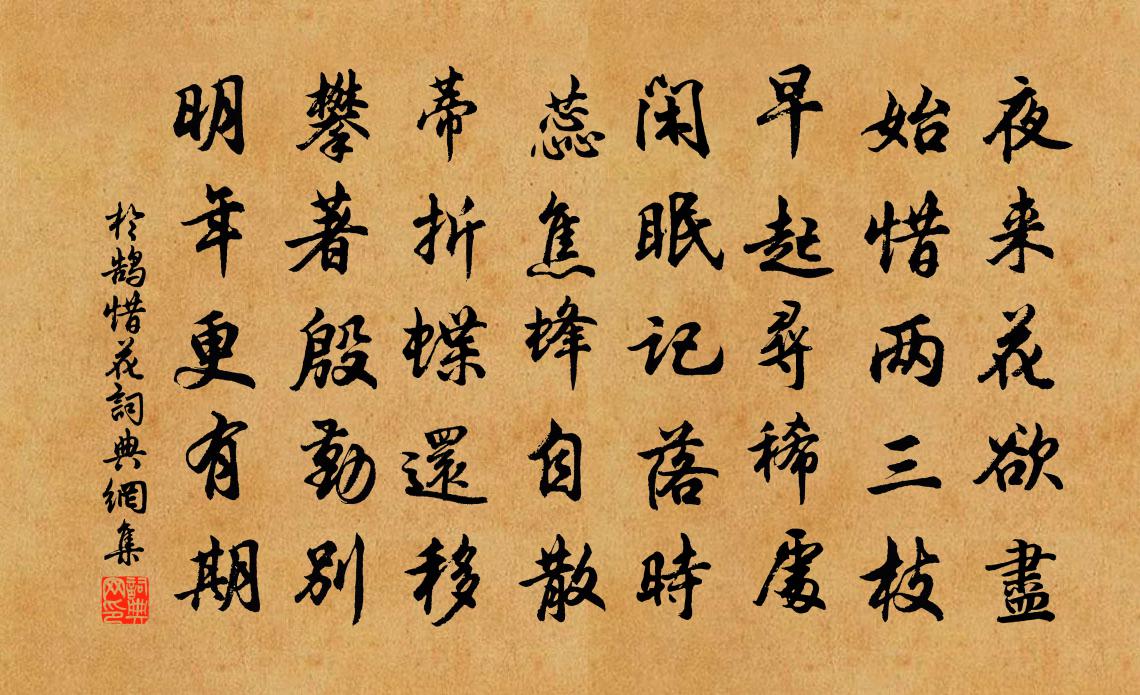 夜来花欲盡
始惜两三枝
早起尋稀處
闲眠記落時
蕊焦蜂自散
蒂折蝶還移
攀著殷勤別
明年更有期
於鹄惜花詞典網集
詞典网印